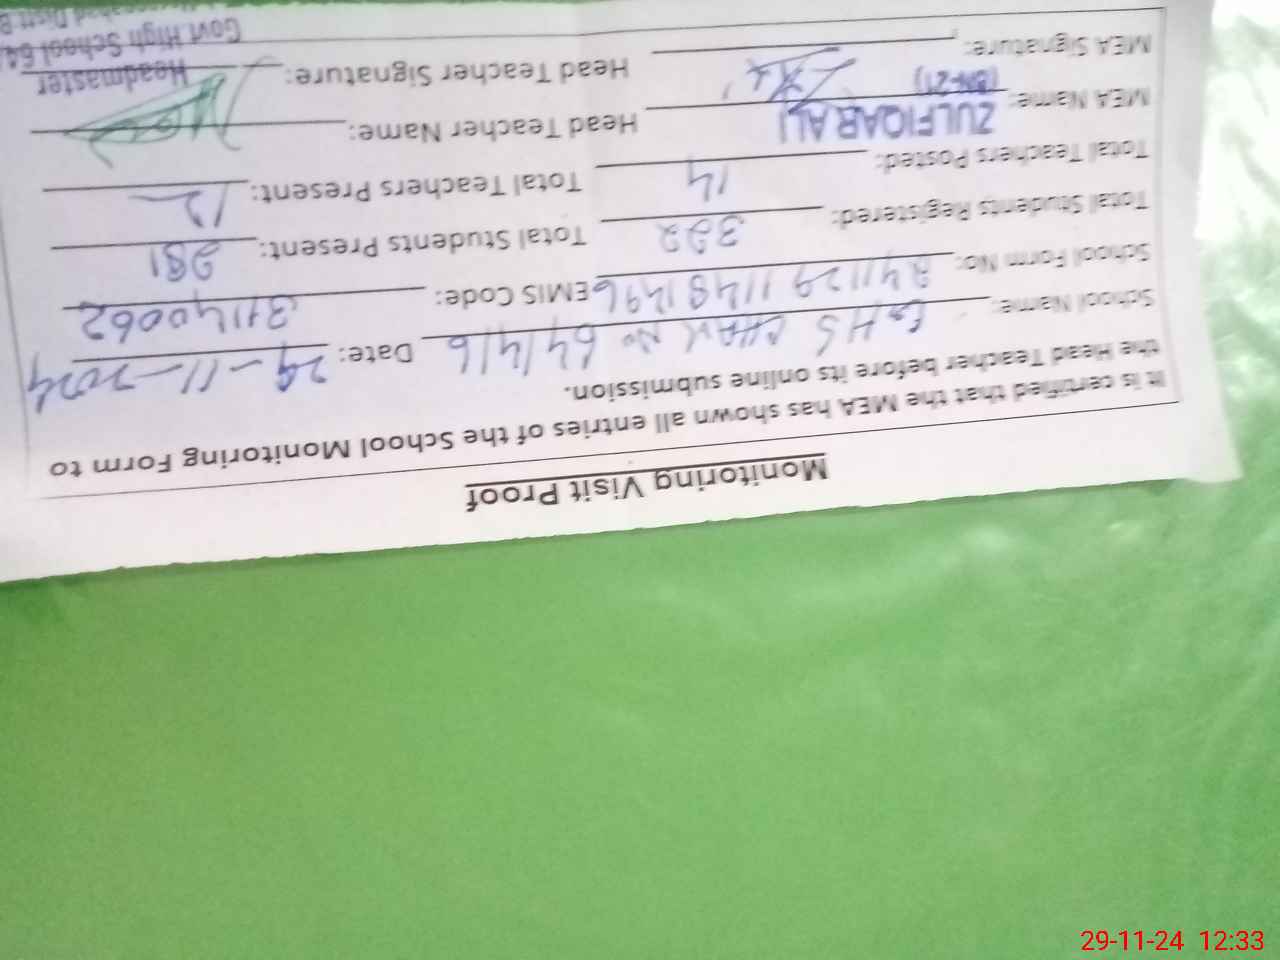 Monitoring Visit Proof
It is certified that the MEA has shown all entries of the School Monitoring Form to
the Head Teacher before its online submission.
School Name: GHS CHAK No 64/4/6 Date: 29-11-2024
School Form No: 24112911481496 EMIS Code: 31140062
Total Students Registered: 322 Total Students Present: 281
Total Teachers Posted: 14 Total Teachers Present: 12
MEA Name: ZULFIQAR ALI Head Teacher Name:
(BN-21)
MEA Signature: Head Teacher Signature:
Headmaster
Govt High School 64
29-11-24 12:33